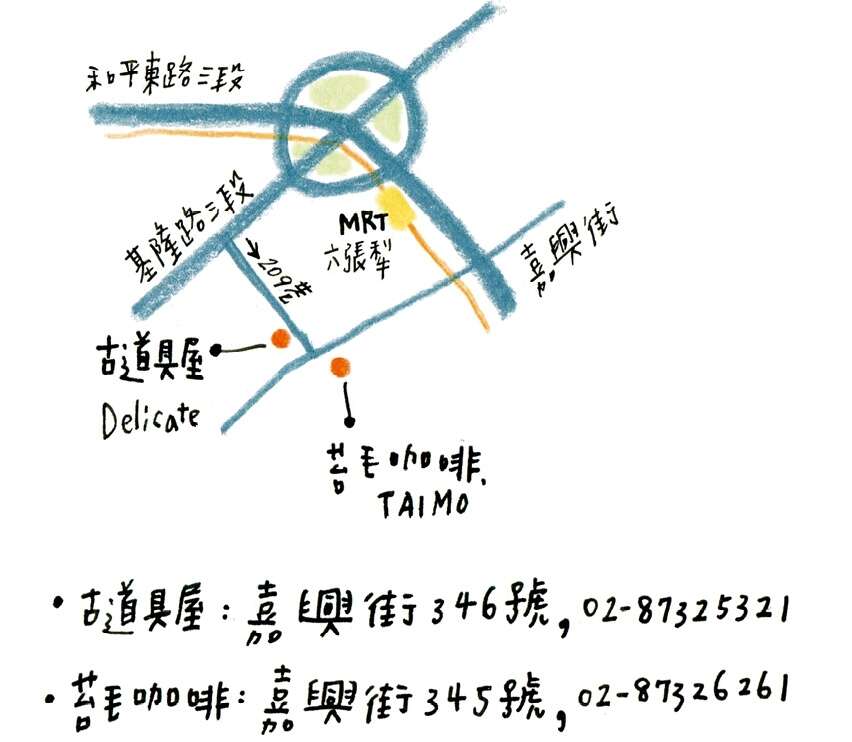 和平東路三段
基隆路三段
MRT
六張犁
嘉興街
209巷
古道具屋
Delicate
苔毛咖啡
TAIMO
• 古道具屋：嘉興街346號, 02-87325321
• 苔毛咖啡：嘉興街345號, 02-87326261